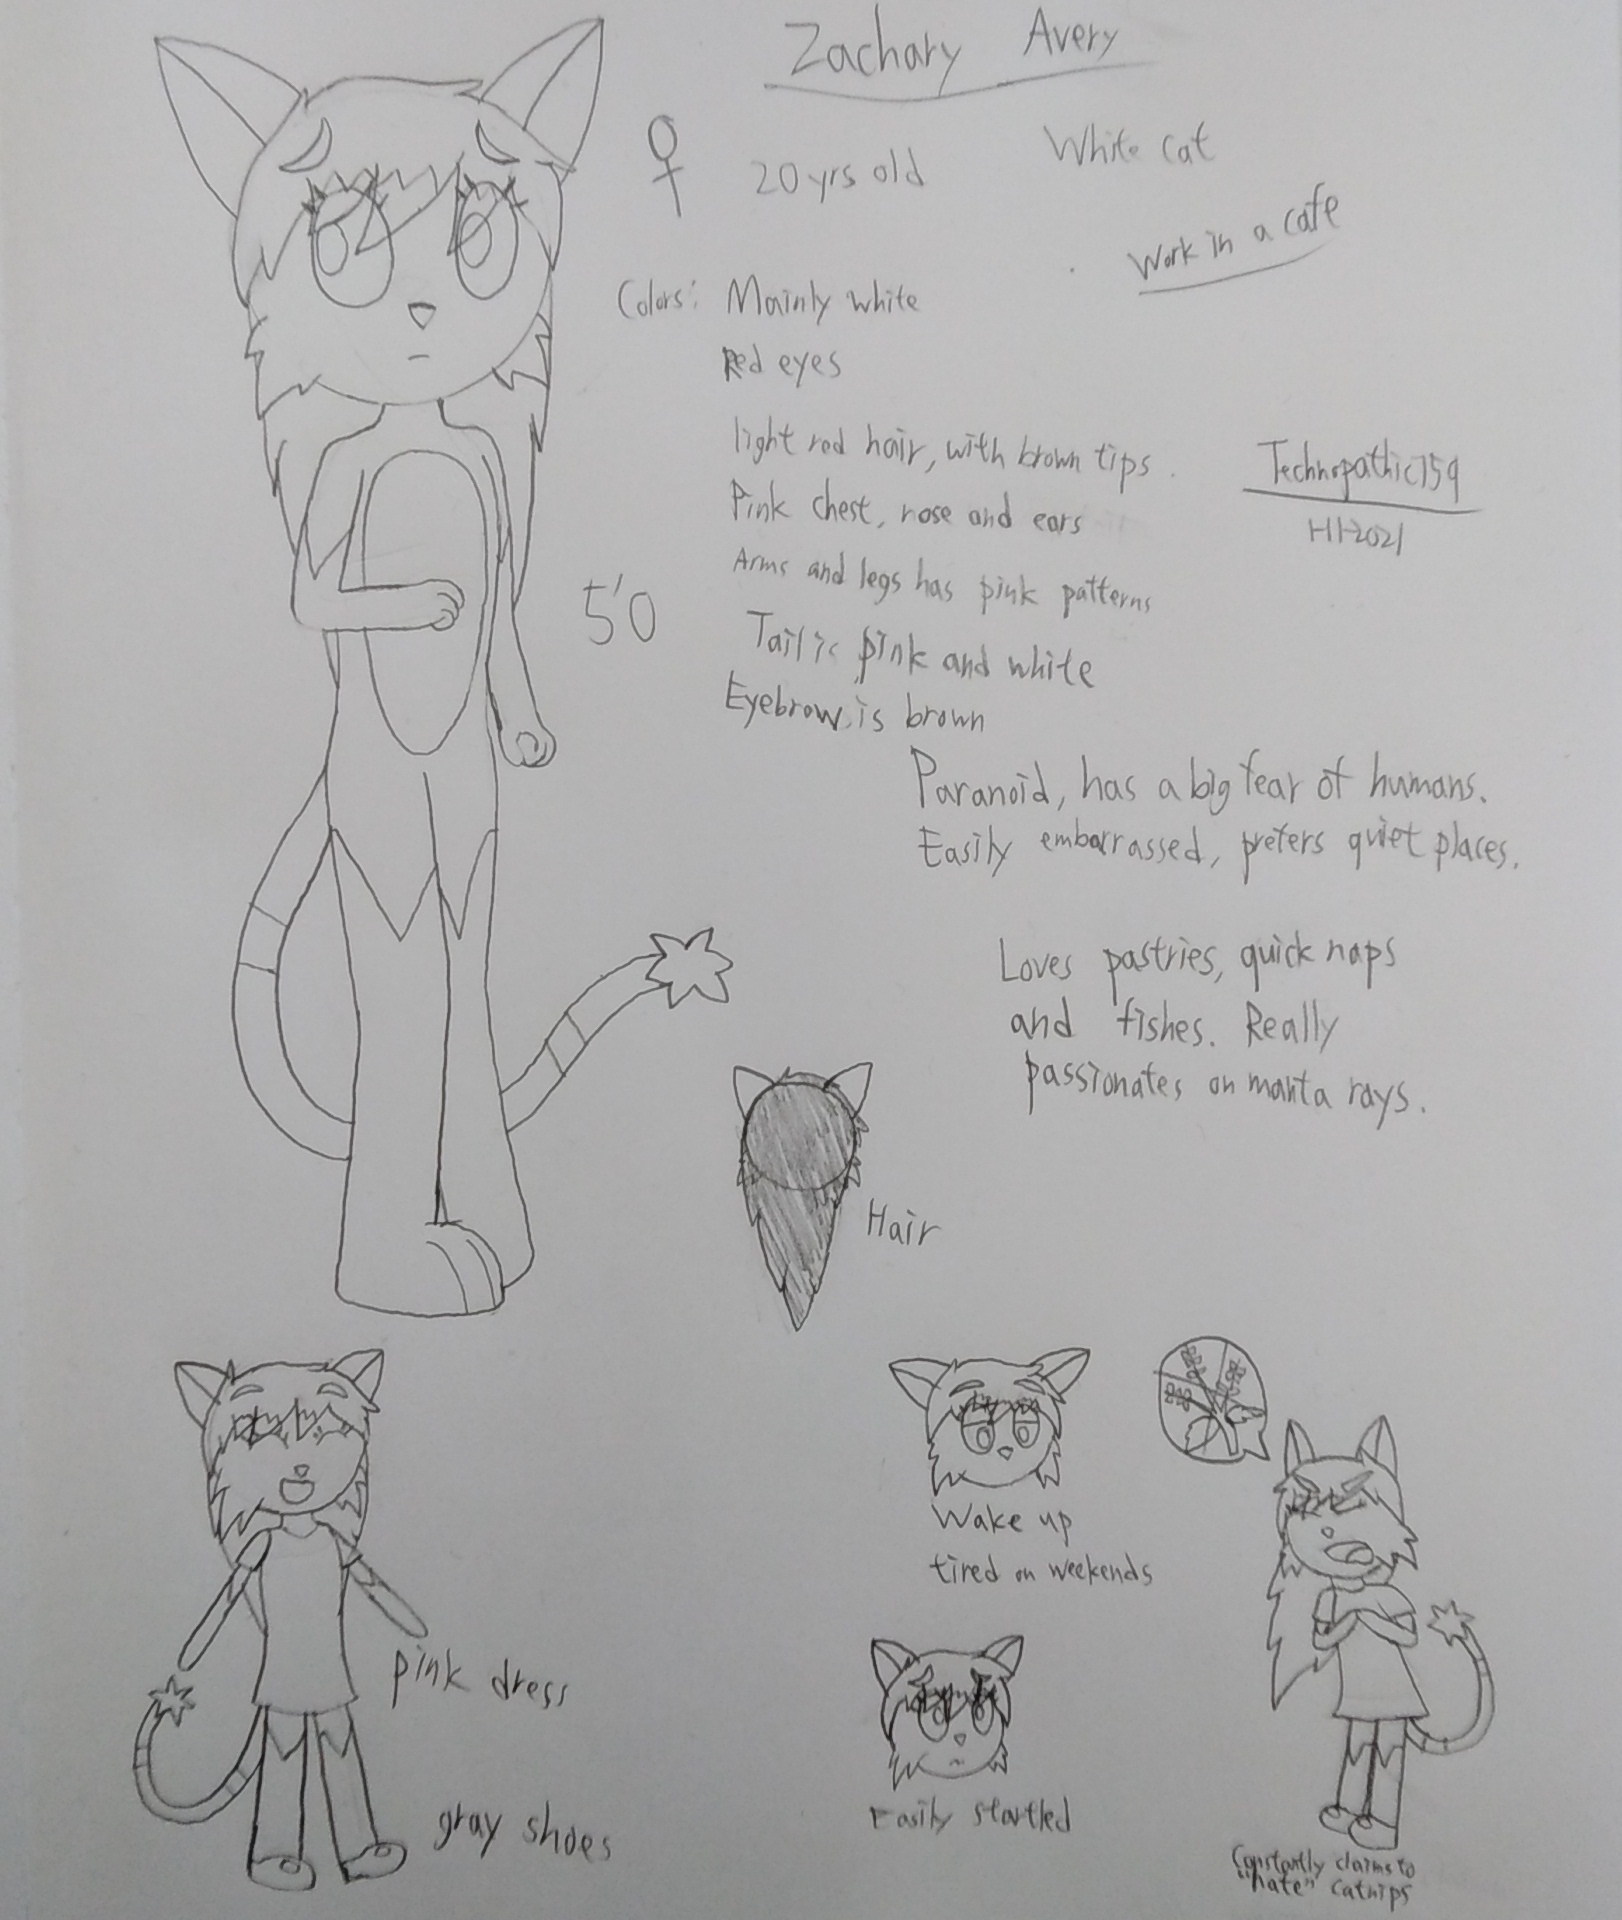 Zachary Avery
♀ 20 yrs old White cat
Work in a cafe
Colors: Mainly white
Red eyes
light red hair, with brown tips.
Pink chest, nose and ears
Technopathic759
H1-2021
Arms and legs has pink patterns
5'0
Tail is pink and white
Eyebrow is brown
Paranoid, has a big fear of humans.
Easily embarrassed, prefers quiet places.
Loves pastries, quick naps
and fishes. Really
passionates on manta rays.
Hair
Wake up
tired on weekends
pink dress
gray shoes
Easily startled
Constantly claims to
"hate" catnips